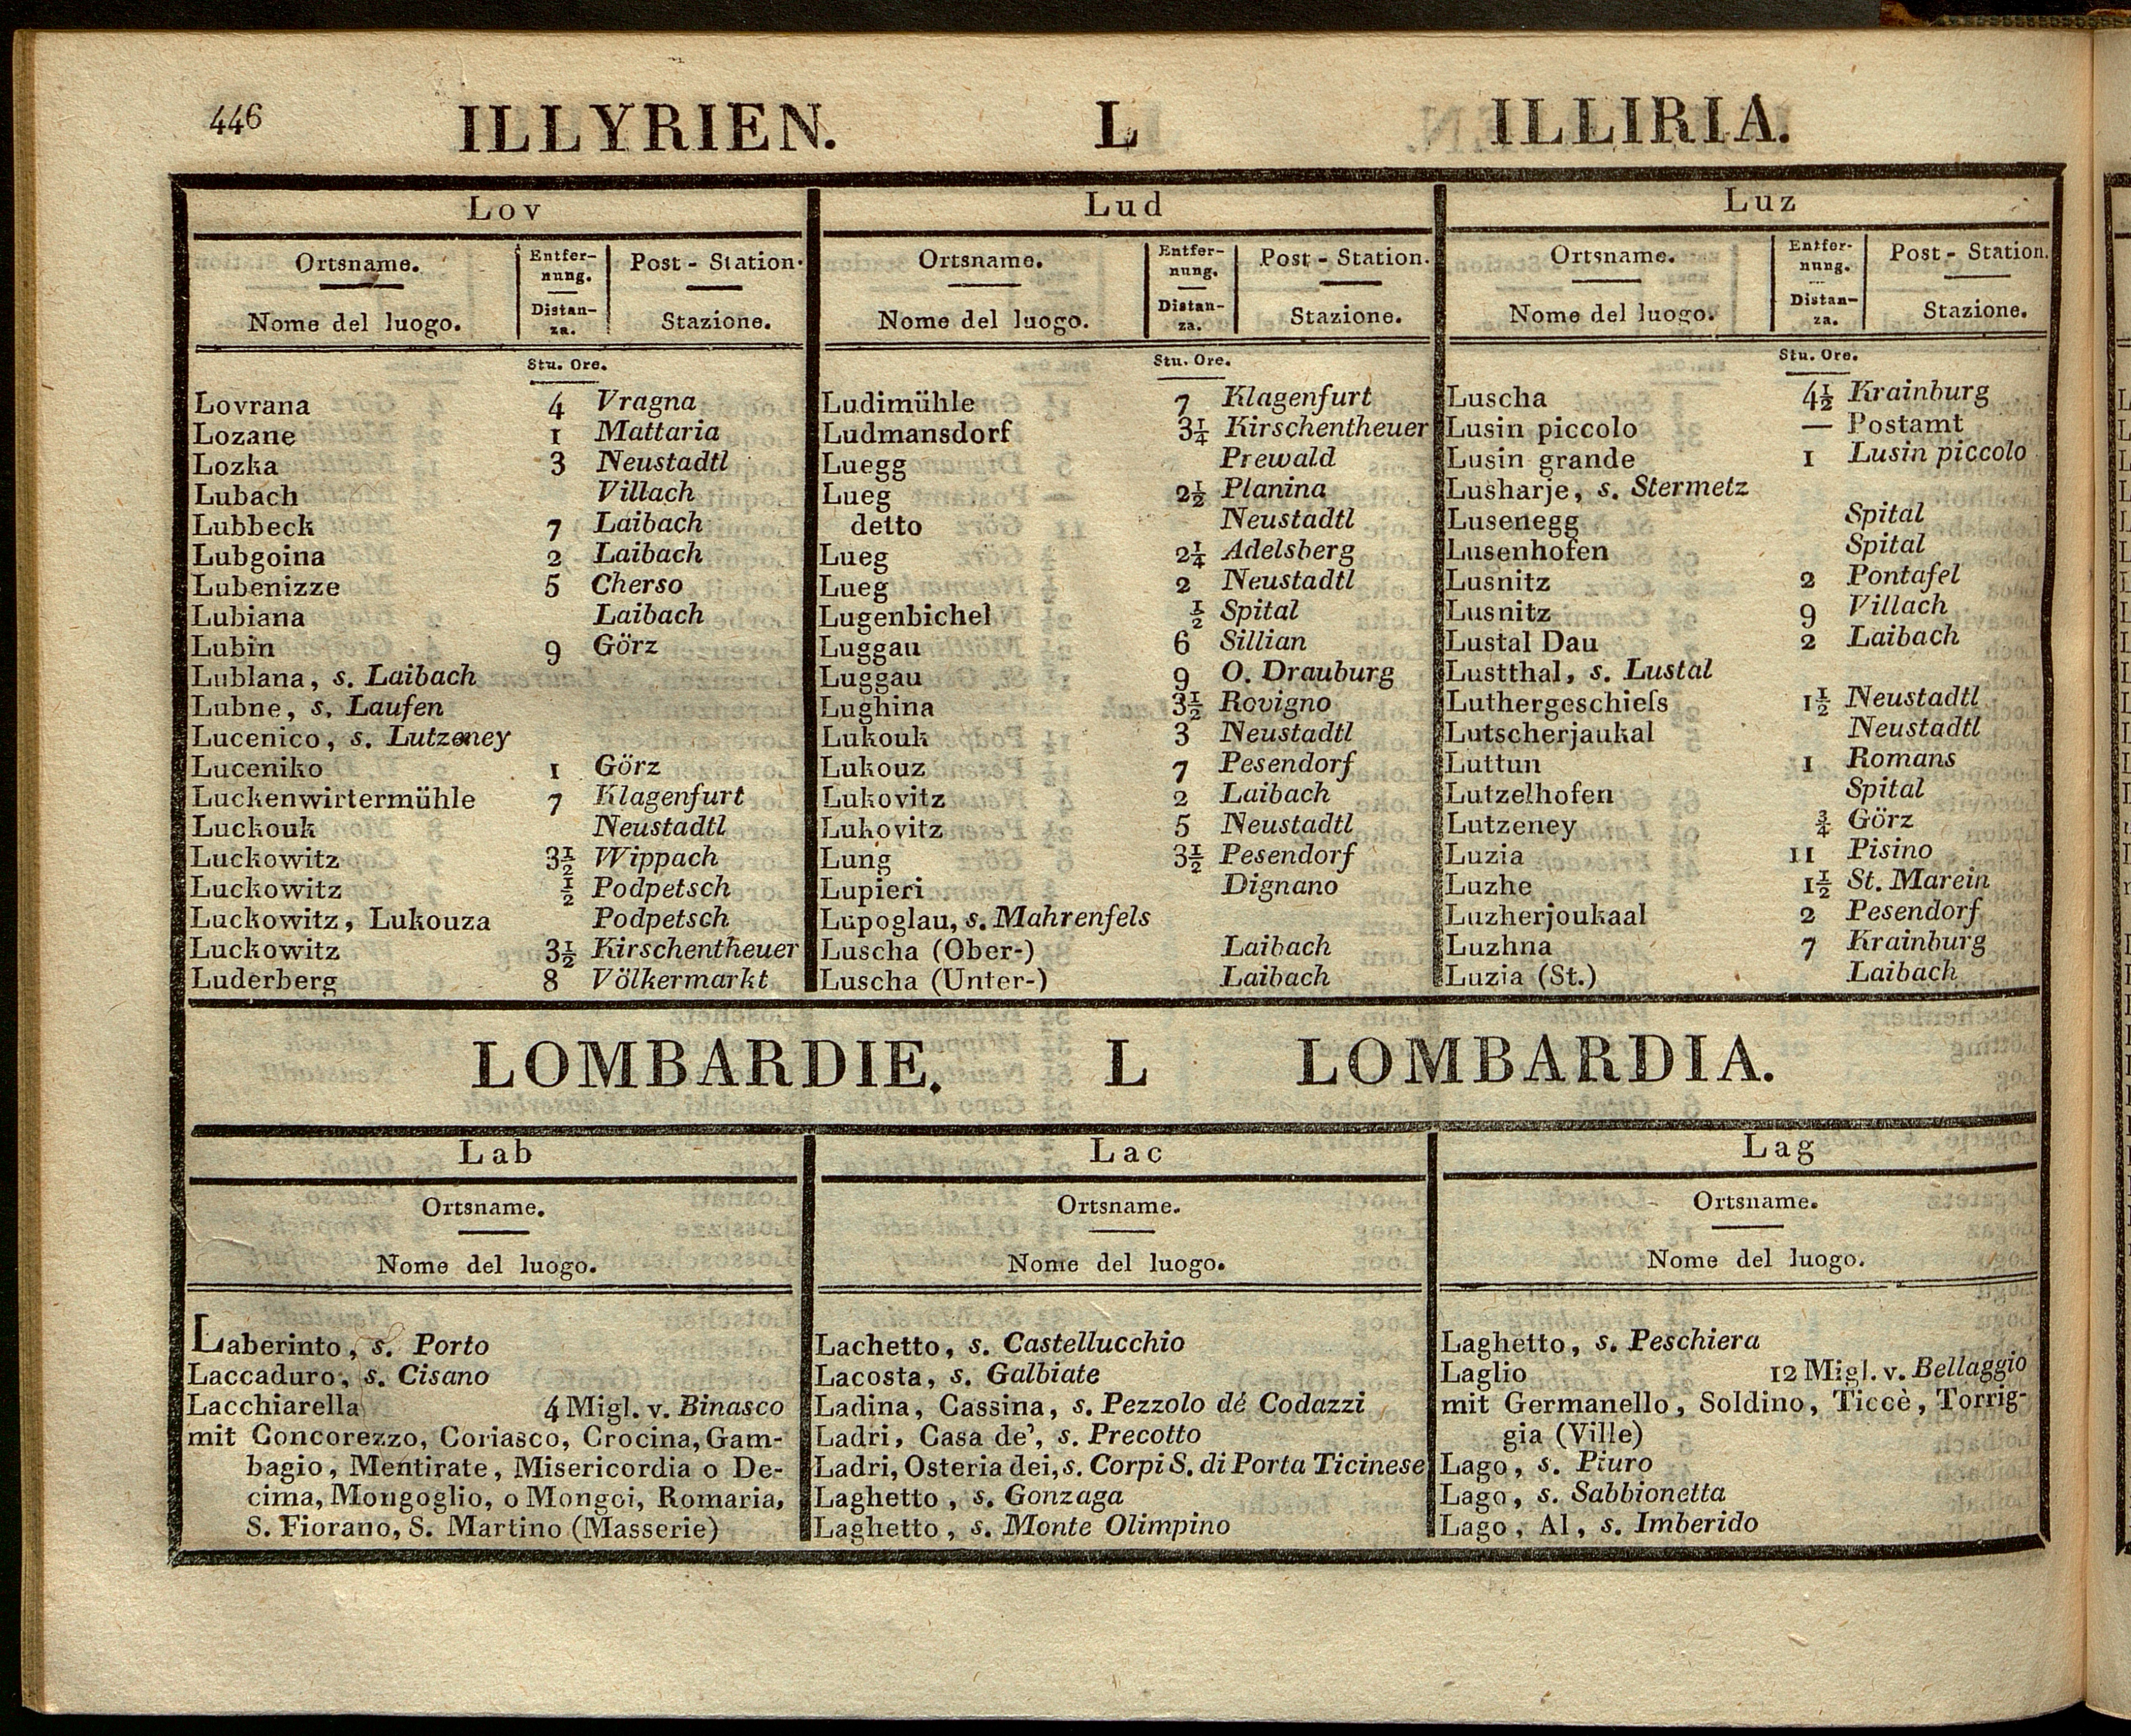 446
ILLYRIEN. L ILLIRIA.
Lov
Ortsname. Entfer- Post - Station.
nung.
Nome del luogo. Distan- Stazione.
za.
Stu. Ore.
Lovrana 4 Vragna
Lozane 1 Mattaria
Lozka 3 Neustadtl
Lubach Villach
Lubbeck 7 Laibach
Lubgoina 2 Laibach
Lubenizze 5 Cherso
Lubiana Laibach
Lubin 9 Görz
Lublana, s. Laibach
Lubne, s. Laufen
Lucenico, s. Lutzeney
Luceniko 1 Görz
Luckenwirtermühle 7 Klagenfurt
Luckouk Neustadtl
Luckowitz 3½ Wippach
Luckowitz ½ Podpetsch
Luckowitz, Lukouza Podpetsch
Luckowitz 3½ Kirschentheuer
Luderberg 8 Völkermarkt
Lud
Ortsname. Entfer- Post - Station.
nung.
Nome del luogo. Distan- Stazione.
za.
Stu. Ore.
Ludimühle 7 Klagenfurt
Ludmansdorf 3¼ Kirschentheuer
Luegg Prewald
Lueg 2½ Planina
detto Neustadtl
Lueg 2¼ Adelsberg
Lueg 2 Neustadtl
Lugenbichel ½ Spital
Luggau 6 Sillian
Luggau 9 O. Drauburg
Lughina 3½ Rovigno
Lukouk 3 Neustadtl
Lukouz 7 Pesendorf
Lukovitz 2 Laibach
Lukovitz 5 Neustadtl
Lung 3½ Pesendorf
Lupieri Dignano
Lupoglau, s. Mahrenfels
Luscha (Ober-) Laibach
Luscha (Unter-) Laibach
Luz
Ortsname. Entfer- Post - Station.
nung.
Nome del luogo. Distan- Stazione.
za.
Stu. Ore.
Luscha 4½ Krainburg
Lusin piccolo — Postamt
Lusin grande 1 Lusin piccolo
Lusharje, s. Stermetz
Lusenegg Spital
Lusenhofen Spital
Lusnitz 2 Pontafel
Lusnitz 9 Villach
Lustal Dau 2 Laibach
Lustthal, s. Lustal
Luthergeschieſs 1½ Neustadtl
Lutscherjaukal Neustadtl
Luttun 1 Romans
Lutzelhofen Spital
Lutzeney ¾ Görz
Luzia 11 Pisino
Luzhe 1½ St. Marein
Luzherjoukaal 2 Pesendorf
Luzhna 7 Krainburg
Luzia (St.) Laibach
LOMBARDIE. L LOMBARDIA.
Lab
Ortsname.
Nome del luogo.
Laberinto, s. Porto
Laccaduro, s. Cisano
Lacchiarella 4 Migl. v. Binasco
mit Concorezzo, Coriasco, Crocina, Gam-
bagio, Mentirate, Misericordia o De-
cima, Mongoglio, o Mongoi, Romaria,
S. Fiorano, S. Martino (Masserie)
Lac
Ortsname.
Nome del luogo.
Lachetto, s. Castellucchio
Lacosta, s. Galbiate
Ladina, Cassina, s. Pezzolo dé Codazzi
Ladri, Casa de', s. Precotto
Ladri, Osteria dei, s. Corpi S. di Porta Ticinese
Laghetto, s. Gonzaga
Laghetto, s. Monte Olimpino
Lag
Ortsname.
Nome del luogo.
Laghetto, s. Peschiera
Laglio 12 Migl. v. Bellaggio
mit Germanello, Soldino, Ticcè, Torrig-
gia (Ville)
Lago, s. Piuro
Lago, s. Sabbionetta
Lago, Al, s. Imberido